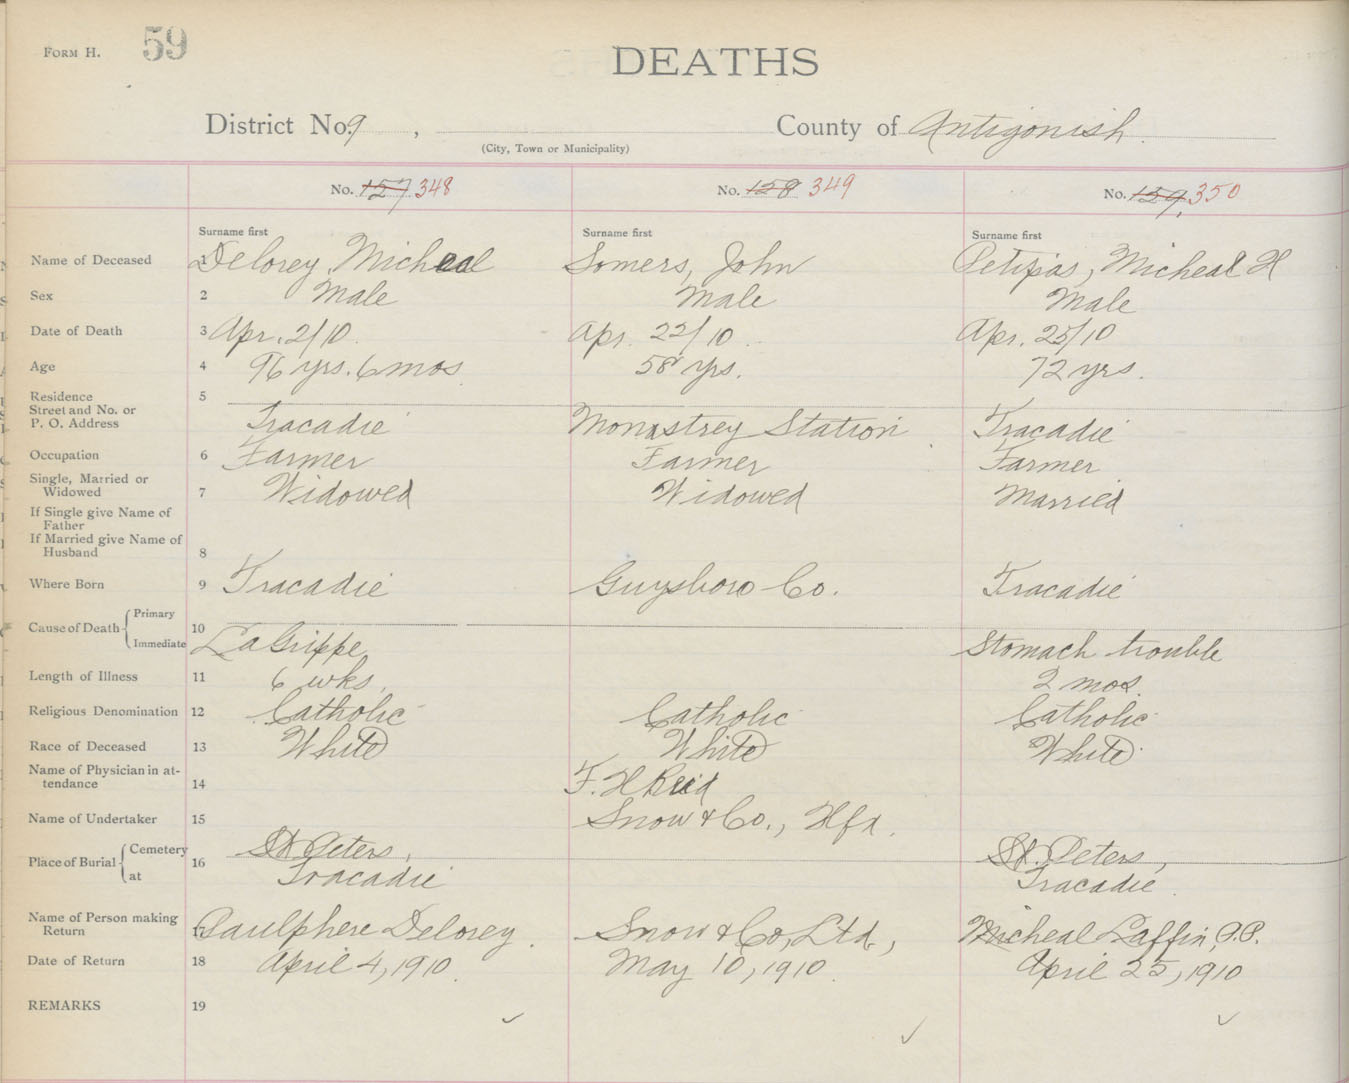 FORM H. 59
DEATHS
District No. 9 , County of Antigonish.
(City, Town or Municipality)
No. 157 348 No. 158 349 No. 159, 350
Surname first Surname first Surname first
Name of Deceased 1 Delorey, Micheal Somers, John Petipas, Micheal H
Sex 2 Male Male Male
Date of Death 3 Apr. 2/10. Apr. 22/10. Apr. 25/10
Age 4 96 yrs. 6 mos. 58 yrs. 72 yrs.
Residence 5
Street and No. or
P. O. Address Tracadie Monastrey Station Tracadie
Occupation 6 Farmer Farmer Farmer
Single, Married or
Widowed 7 Widowed Widowed Married
If Single give Name of
Father
If Married give Name of
Husband 8
Where Born 9 Tracadie Guysboro Co. Tracadie
Cause of Death { Primary 10
Immediate La Grippe Stomach trouble
Length of Illness 11 6 wks, 2 mos.
Religious Denomination 12 Catholic Catholic Catholic
Race of Deceased 13 White White White
Name of Physician in at-
tendance 14 F. H Reid
Name of Undertaker 15 Snow & Co., Hfx.
Place of Burial { Cemetery 16 St. Peters, St. Peters,
at Tracadie Tracadie.
Name of Person making
Return 17 Paulphere Delorey. Snow & Co, Ltd., Micheal Laffin, P.P.
Date of Return 18 April 4, 1910. May 10, 1910. April 25, 1910
REMARKS 19